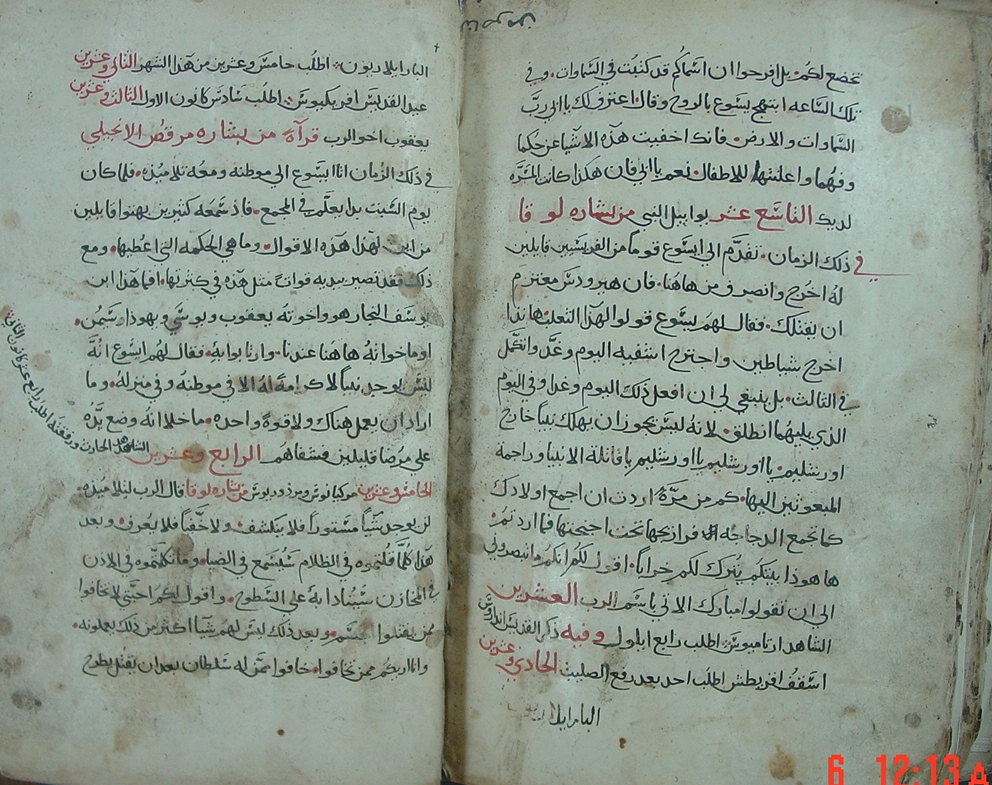 تخضع لكم بل افرحوا ان اسماكم قد كتبت في السماوات وفي
تلك الساعه ابتهج يسوع بالروح وقال اعترف لك يا ابي رب
السماوات والارض فانك اخفيت هذه الاشيا عن حكما
وفهما واعلنتها للاطفال نعم يا ابي فان هكذا كانت المسره
لديك التاسع عشر يواييل النبي من بشاره لوقا
في ذلك الزمان تقدم الي ايسوع قوما من الفريسين قايلين
له اخرج وانصرف من هاهنا فان هيرودس معتزم
ان يقتلك فقال لهم يسوع قولوا لهذا الثعلب هاندا
اخرج شياطين واجترح اشفيه اليوم وغد واكمل
في الثالث بل ينبغي لي ان افعل ذلك اليوم وغدا وفي اليوم
الذي يليهما انطلق لانه ليس يجوز ان يهلك نبيا خارج
اورشليم يا اورشليم يا اورشليم يا قاتلة الانبيا وراجمة
المبعوثين اليها كم من مرة اردت ان اجمع اولادك
كما تجمع الدجاجه فراريجها تحت اجنحتها فما اردتم
ها هوذا بيتكم يترك لكم خرابا اقول لكم انكم ما تبصروني
الي ان تقولوا مبارك الاتي باسم الرب العشرين
الشاهد ارتاميوس اطلب رابع ايلول وفيه ذكر القديس اندراوس
اسقف اقريطش اطلب احد بعد رفع الصليب الحادي وعشرين
البار ايلاريون
البار ايلاريون اطلب خامس وعشرين من هذا الشهر الثاني وعشرين
عيد القديس افريكيوس اطلب سادس كانون الاول الثالث وعشرين
يعقوب اخو الرب قرآة من بشاره مرقص الانجيلي
في ذلك الزمان اتا ايسوع الي موطنه ومعه تلاميذه فلما كان
يوم السبت بدا يعلم في المجمع فاذ سمعه كثيرين بهتوا قايلين
من اين لهذا هذه الاقوال وما هي الحكمه التي اعطيها ومع
ذلك فقد تصير بيديه قوات مثل هذه في كثرتها افما هذا ابن
يوسف النجار هو واخوته يعقوب ويوسي ويهودا وسمعن
اوما خواته هاهنا عندنا وارتابوا به فقال لهم ايسوع انه
ليس يوجد نبيا لا كرامة له الا في موطنه وفي منزله وما
اراد ان يعمل هناك ولا قوة واحده ما خلا انه وضع يده
علي مرضا قليلين فشفاهم الرابع وعشرين
الخامس وعشرين مركيانوس ومرذوريوس من بشاره لوقا قال الرب لتلاميذه
لن يوجد شيا مستورا فلا ينكشف ولا خفيا فلا يعرف وبعد
هذا كلما قلتموه في الظلام سيسمع في الضيا وما تكلمتموه في الاذن
في المخازن سينادا به علي السطوح واقول لكم احبتي لا تخافوا
ممن يقتلوا الجسم وبعد ذلك ليس لهم شيا اكثر من ذلك يعملونه
وانا اريكم ممن تخافوا خافوا ممن له سلطان بعد ان يقتل يطرح
الحارث ورفقته اطلب رابع عشر كانون الثاني